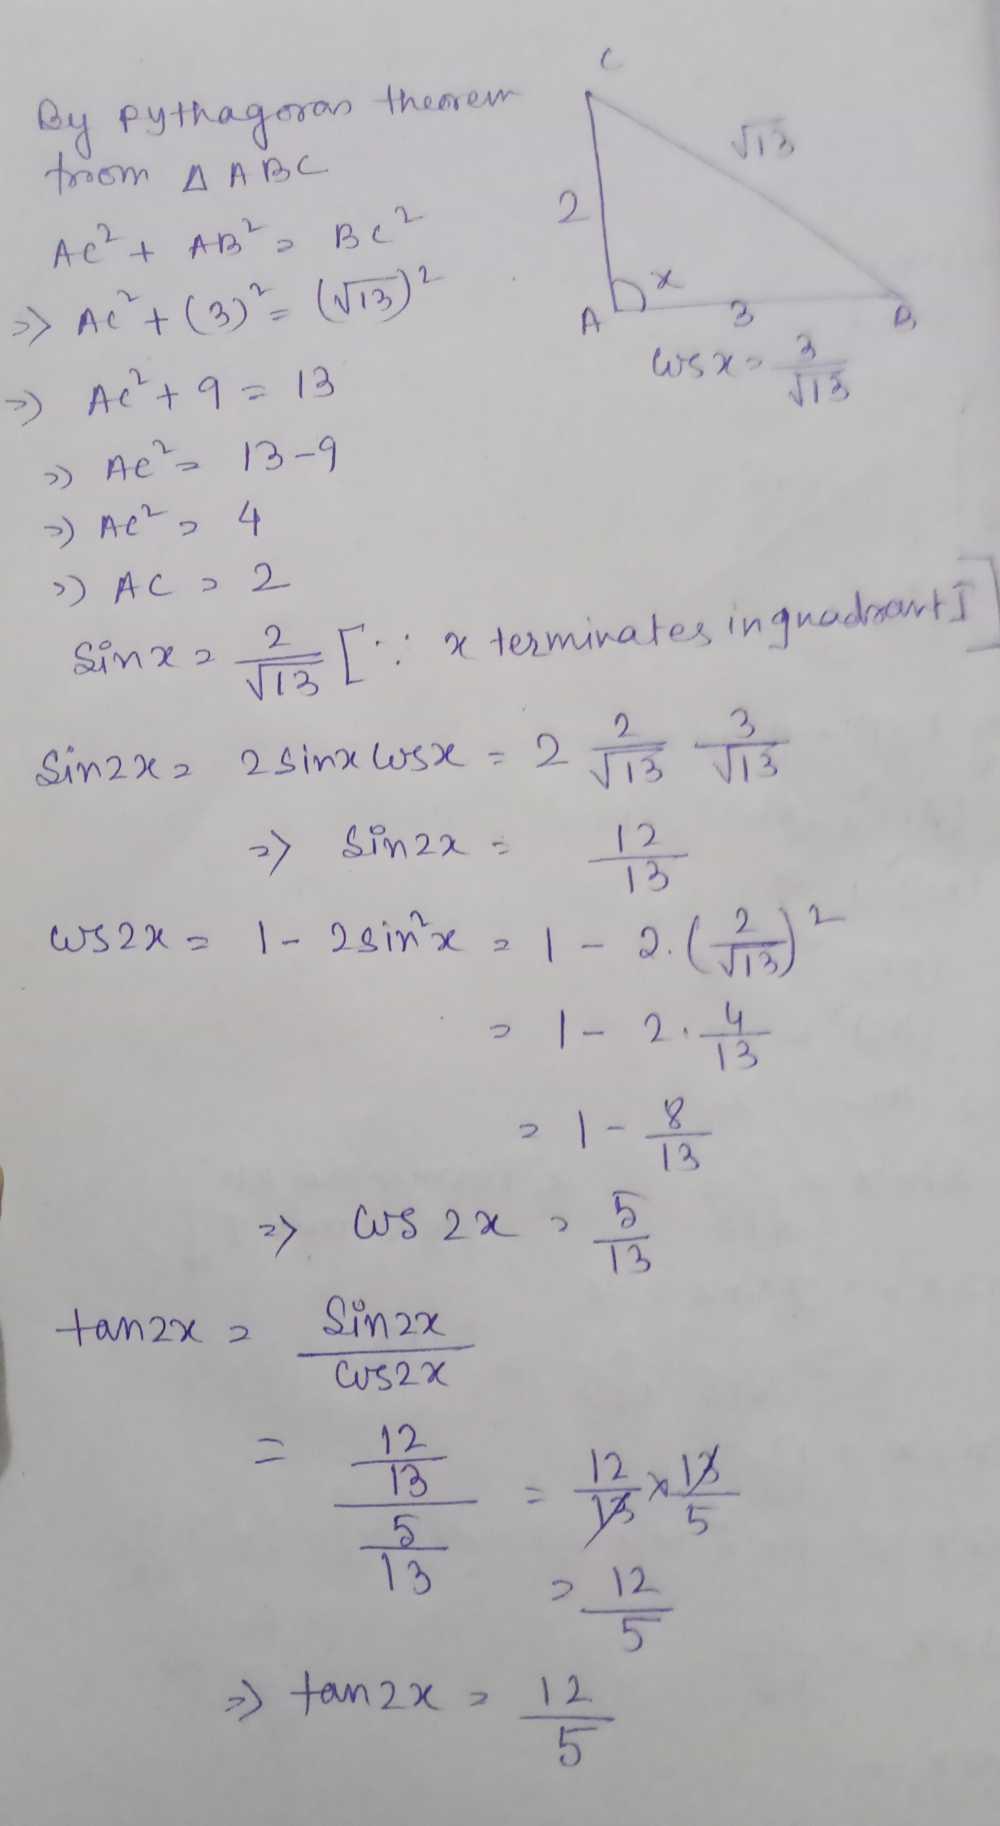 By pythagoras theorem
from Δ ABC
AC² + AB² = BC²
⇒ AC² + (3)² = (√13)²
⇒ AC² + 9 = 13
⇒ AC² = 13-9
⇒ AC² = 4
⇒ AC = 2
C
√13
2
x
A
3
B
cos x = 3/√13
Sin x = 2/√13 [∵ x terminates in quadrant I]
Sin2x = 2 sinx cosx = 2 2/√13 3/√13
⇒ Sin2x = 12/13
cos2x = 1 - 2sin²x = 1 - 2.(2/√13)²
= 1 - 2 . 4/13
= 1 - 8/13
⇒ cos 2x = 5/13
tan2x = Sin2x/cos2x
= 12/13 / 5/13 = 12/13 × 13/5
= 12/5
⇒ tan2x = 12/5